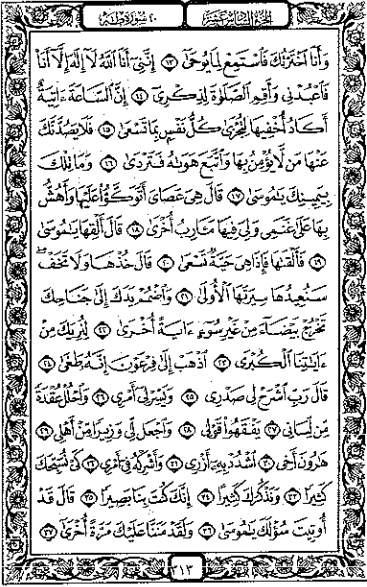 الجزء السادس عشر
٢٠ سورة طه
وَأَنَا ٱخْتَرْتُكَ فَٱسْتَمِعْ لِمَا يُوحَىٰٓ ١٣ إِنَّنِىٓ أَنَا ٱللَّهُ لَآ إِلَٰهَ إِلَّآ أَنَا۠
فَٱعْبُدْنِى وَأَقِمِ ٱلصَّلَوٰةَ لِذِكْرِىٓ ١٤ إِنَّ ٱلسَّاعَةَ ءَاتِيَةٌ
أَكَادُ أُخْفِيهَا لِتُجْزَىٰ كُلُّ نَفْسٍۭ بِمَا تَسْعَىٰ ١٥ فَلَا يَصُدَّنَّكَ
عَنْهَا مَن لَّا يُؤْمِنُ بِهَا وَٱتَّبَعَ هَوَىٰهُ فَتَرْدَىٰ ١٦ وَمَا تِلْكَ
بِيَمِينِكَ يَٰمُوسَىٰ ١٧ قَالَ هِىَ عَصَاىَ أَتَوَكَّؤُا۟ عَلَيْهَا وَأَهُشُّ
بِهَا عَلَىٰ غَنَمِى وَلِىَ فِيهَا مَـَٔارِبُ أُخْرَىٰ ١٨ قَالَ أَلْقِهَا يَٰمُوسَىٰ
١٩ فَأَلْقَىٰهَا فَإِذَا هِىَ حَيَّةٌ تَسْعَىٰ ٢٠ قَالَ خُذْهَا وَلَا تَخَفْ ۖ
سَنُعِيدُهَا سِيرَتَهَا ٱلْأُولَىٰ ٢١ وَٱضْمُمْ يَدَكَ إِلَىٰ جَنَاحِكَ
تَخْرُجْ بَيْضَآءَ مِنْ غَيْرِ سُوٓءٍ ءَايَةً أُخْرَىٰ ٢٢ لِنُرِيَكَ مِنْ
ءَايَٰتِنَا ٱلْكُبْرَى ٢٣ ٱذْهَبْ إِلَىٰ فِرْعَوْنَ إِنَّهُۥ طَغَىٰ ٢٤
قَالَ رَبِّ ٱشْرَحْ لِى صَدْرِى ٢٥ وَيَسِّرْ لِىٓ أَمْرِى ٢٦ وَٱحْلُلْ عُقْدَةً
مِّن لِّسَانِى ٢٧ يَفْقَهُوا۟ قَوْلِى ٢٨ وَٱجْعَل لِّى وَزِيرًا مِّنْ أَهْلِى ٢٩
هَٰرُونَ أَخِى ٣٠ ٱشْدُدْ بِهِۦٓ أَزْرِى ٣١ وَأَشْرِكْهُ فِىٓ أَمْرِى ٣٢ كَىْ نُسَبِّحَكَ
كَثِيرًا ٣٣ وَنَذْكُرَكَ كَثِيرًا ٣٤ إِنَّكَ كُنتَ بِنَا بَصِيرًا ٣٥ قَالَ قَدْ
أُوتِيتَ سُؤْلَكَ يَٰمُوسَىٰ ٣٦ وَلَقَدْ مَنَنَّا عَلَيْكَ مَرَّةً أُخْرَىٰٓ ٣٧
٣١٣